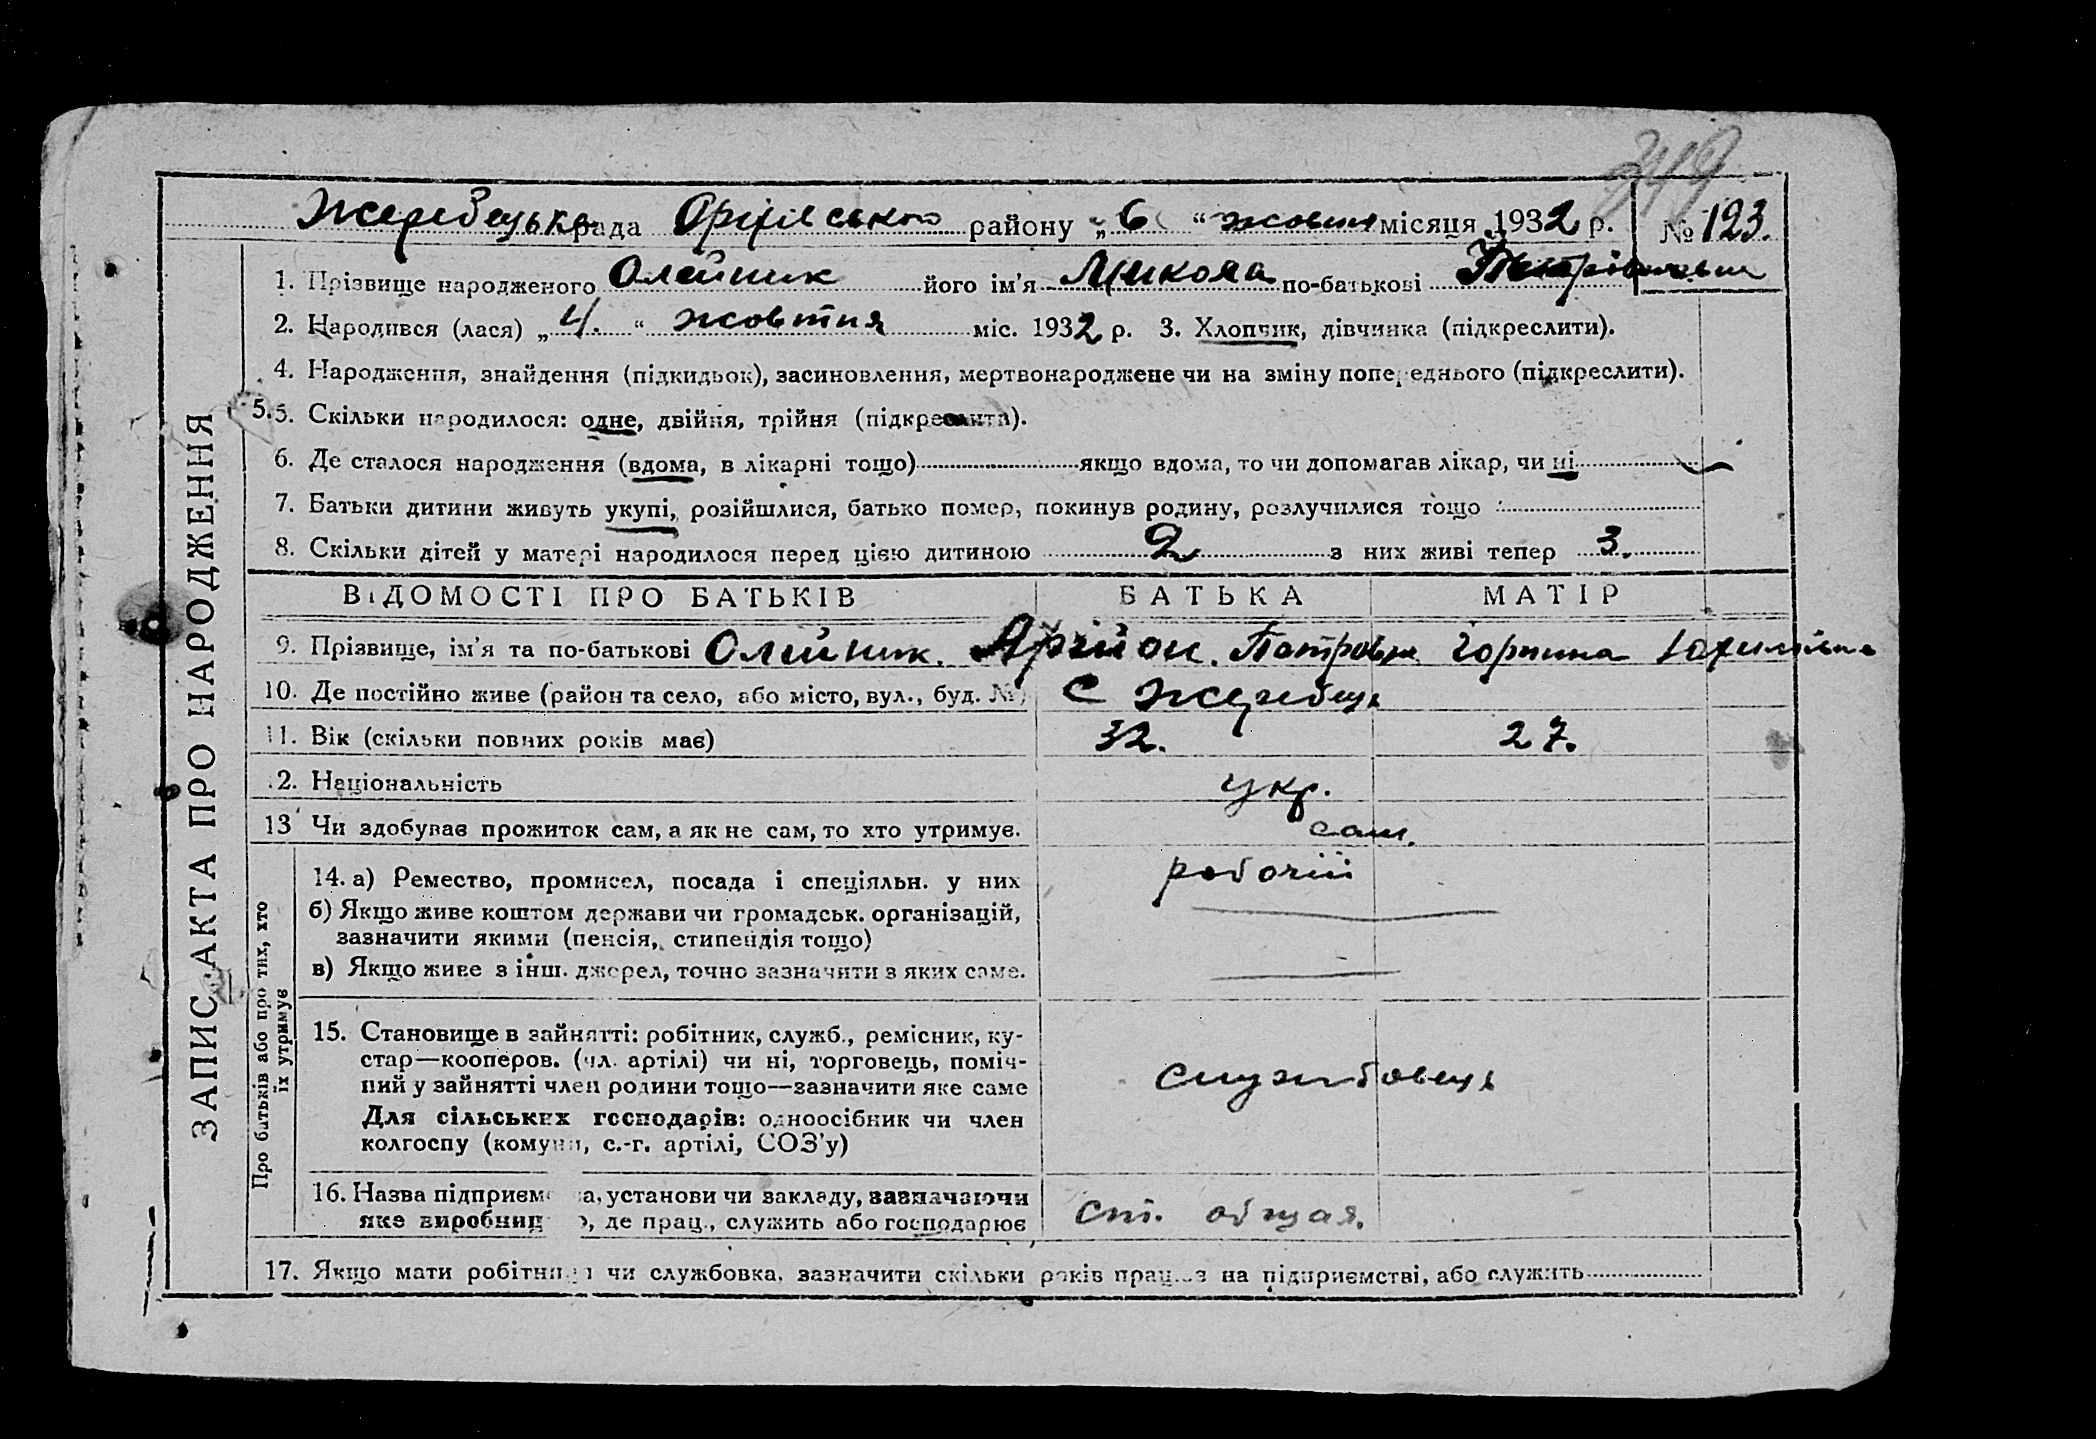 349
Жеребецька рада Оріхівського району „ 6 “ жовтня місяця 1932 р. № 123.
1. Прізвище народженого Олейник його ім'я Микола по-батькові
2. Народився (лася) „ 4. “ жовтня міс. 1932 р. 3. Хлопчик, дівчинка (підкреслити).
4. Народження, знайдення (підкидьок), засиновлення, мертвонароджене чи на зміну попереднього (підкреслити).
5. 5. Скільки народилося: одне, двійня, трійня (підкреслити).
6. Де сталося народження (вдома, в лікарні тощо) якщо вдома, то чи допомагав лікар, чи ні
7. Батьки дитини живуть укупі, розійшлися, батько помер, покинув родину, розлучилися тощо
8. Скільки дітей у матері народилося перед цією дитиною 2 з них живі тепер 3.
ВІДОМОСТІ ПРО БАТЬКІВ БАТЬКА МАТІР
9. Прізвище, ім'я та по-батькові Олейник. Петров. Горпина Юхимівна
10. Де постійно живе (район та село, або місто, вул., буд. №) С Жеребець
11. Вік (скільки повних років має) 32. 27.
12. Національність укр.
13 Чи здобував прожиток сам, а як не сам, то хто утримує. сам.
14. а) Ремество, промисел, посада і спеціяльн. у них робочій
б) Якщо живе коштом держави чи громадськ. організацій,
зазначити якими (пенсія, стипендія тощо)
в) Якщо живе з інш. джерел, точно зазначити з яких саме.
15. Становище в зайнятті: робітник, служб., ремісник, ку-
стар—кооперов. (чл. артілі) чи ні, торговець, поміч-
ний у зайнятті член родини тощо—зазначити яке саме
службовець
Для сільських господарів: одноосібник чи член
колгоспу (комуни, с.-г. артілі, СОЗ'у)
16. Назва підприємства, установи чи закладу, зазначаючи
яке виробництво, де прац., служить або господарює
ст. общая.
17. Якщо мати робітниця чи службовка, зазначити скільки років працює на підприємстві, або служить
ЗАПИС АКТА ПРО НАРОДЖЕННЯ
Про батьків або про тих, хто
їх утримує